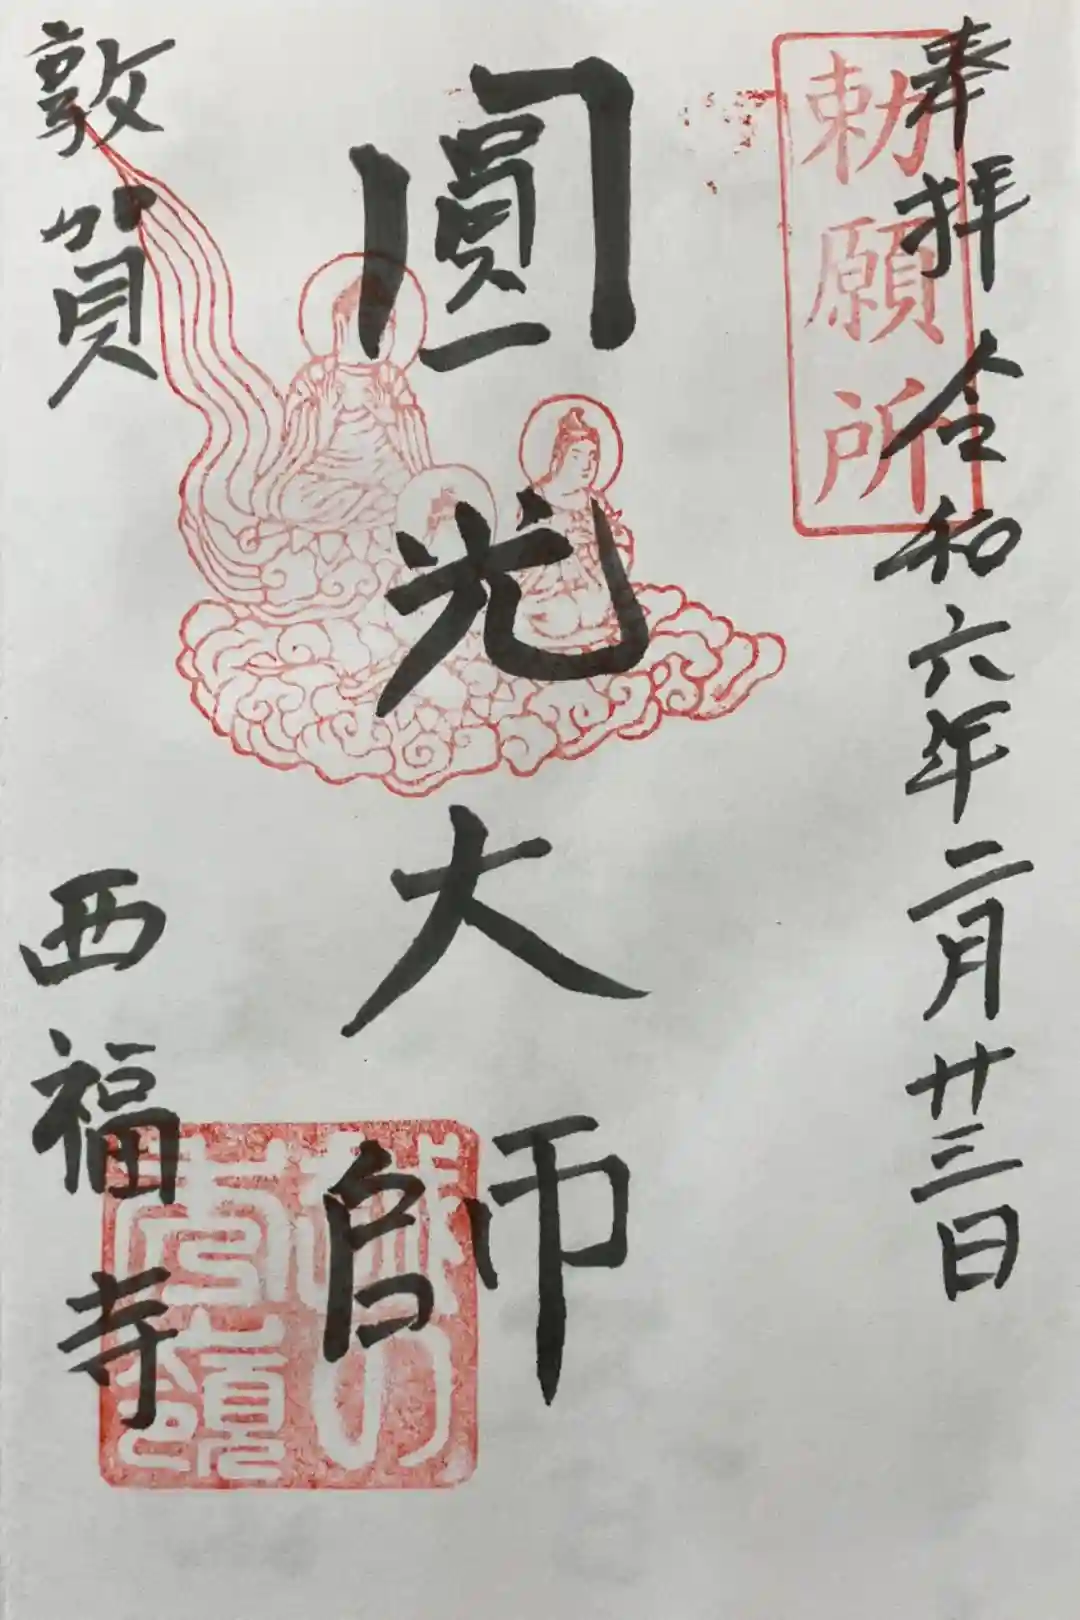 奉拝 令和六年二月廿三日
勅願所
圓光大師
敦賀 西福寺